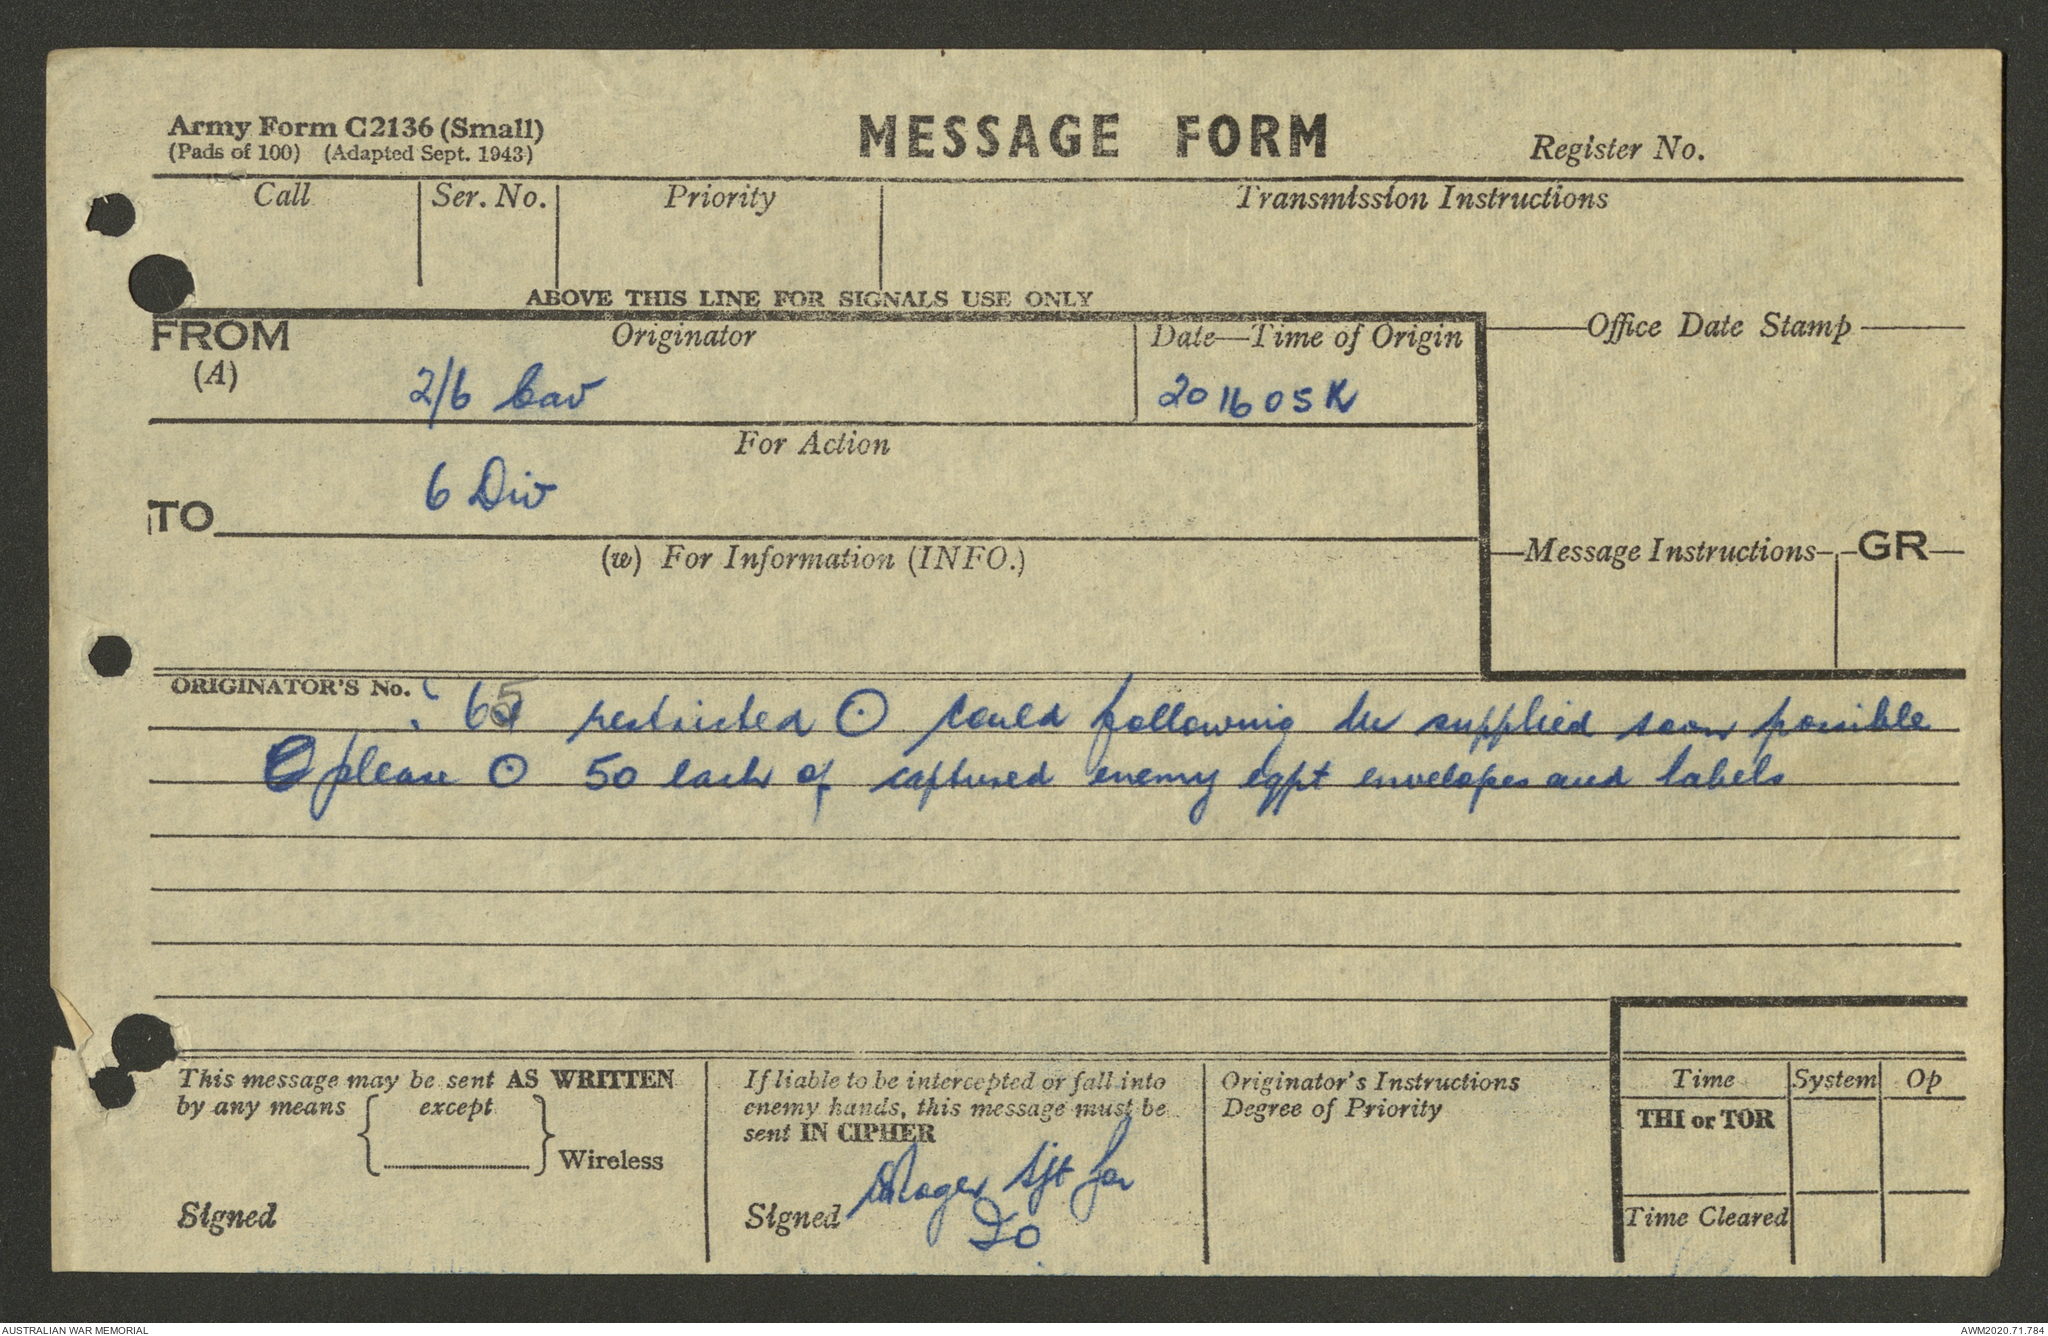 Army Form C2136 (Small)
(Pads of 100) (Adapted Sept. 1943)
MESSAGE FORM
Register No.
Call
Ser. No.
Priority
Transmission Instructions
ABOVE THIS LINE FOR SIGNALS USE ONLY
FROM
(A)
Originator
2/6 Cav
Date—Time of Origin
201605K
Office Date Stamp
For Action
6 Div
TO
(w) For Information (INFO.)
Message Instructions
GR
ORIGINATOR'S No.
: 65 restricted ⊙ could following be supplied soon possible
please ⊙ 50 each of captured enemy eqpt envelopes and labels
This message may be sent AS WRITTEN
by any means { except } Wireless
Signed
If liable to be intercepted or fall into
enemy hands, this message must be
sent IN CIPHER
Signed
Sjt for
IO
Originator's Instructions
Degree of Priority
Time
System
Op
THI or TOR
Time Cleared
AUSTRALIAN WAR MEMORIAL
AWM2020.71.784